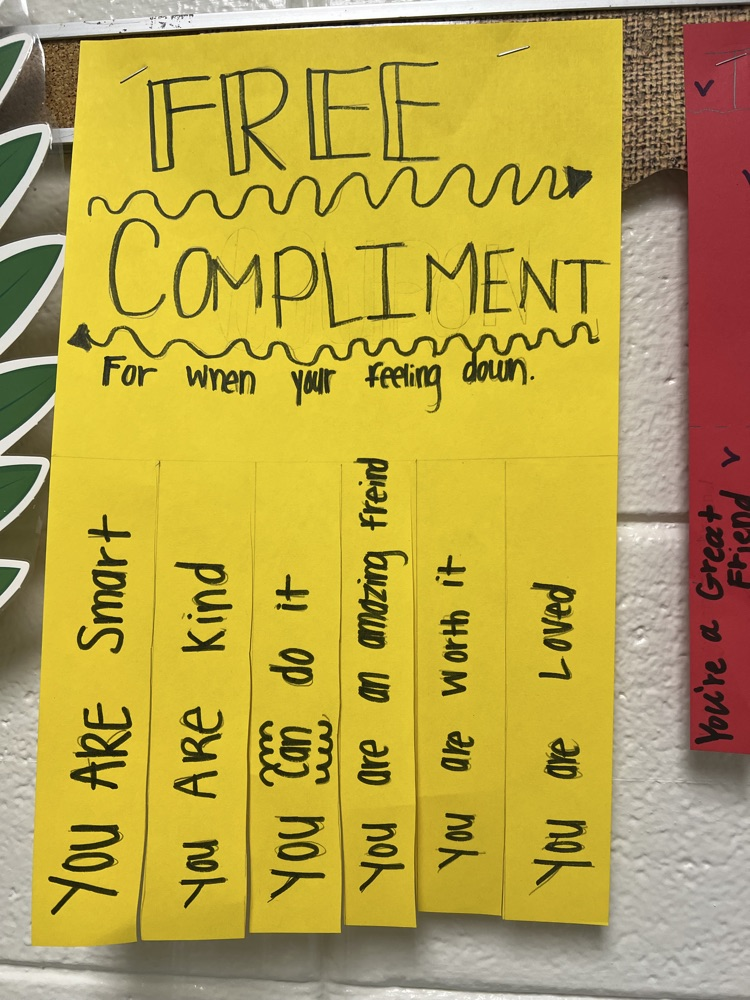 FREE
COMPLIMENT
For when your feeling down.
YOU ARE Smart
You ARE Kind
You can do it
You are an amazing freind
You are worth it
You are Loved
You're a Great
Friend